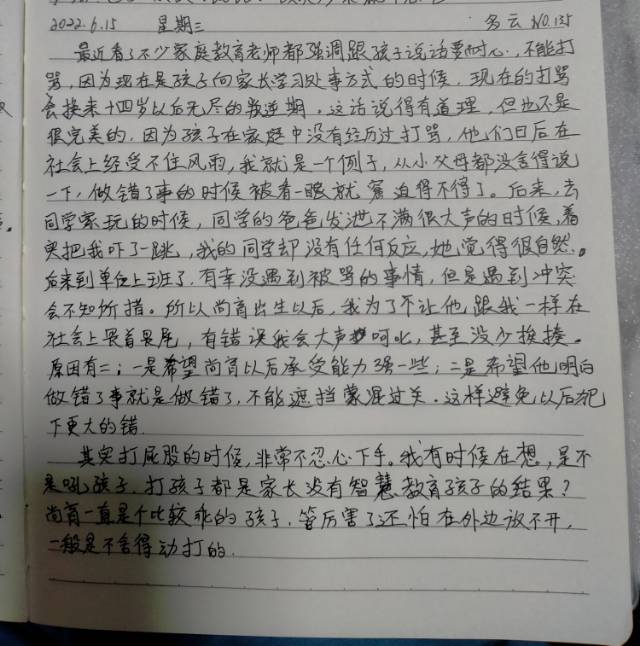 2022.6.15 星期三 多云 NO.135
最近看了不少家庭教育老师都强调跟孩子说话要耐心、不能打
骂,因为现在是孩子向家长学习处事方式的时候,现在的打骂
会换来十四岁以后无尽的叛逆期。这话说得有道理,但也不是
很完美的,因为孩子在家庭中没有经历过打骂,他们日后在
社会上经受不住风雨,我就是一个例子,从小父母都没舍得说
一下,做错了事的时候被看一眼就窘迫得不得了。后来,去
同学家玩的时候,同学的爸爸发泄不满很大声的时候,着
实把我吓了一跳,我的同学却没有任何反应,她觉得很自然。
后来到单位上班了,有幸没遇到被骂的事情,但是遇到冲突
会不知所措。所以尚育出生以后,我为了不让他跟我一样在
社会上畏首畏尾,有错误我会大声呵叱,甚至没少挨揍。
原因有二;一是希望尚育以后承受能力强一些;二是希望他明白
做错了事就是做错了,不能遮挡蒙混过关。这样避免以后犯
下更大的错.
其实打屁股的时候,非常不忍心下手。我有时候在想,是不
是吼孩子、打孩子都是家长没有智慧教育孩子的结果?
尚育一直是个比较乖的孩子,管厉害了还怕在外边放不开,
一般是不舍得动打的.